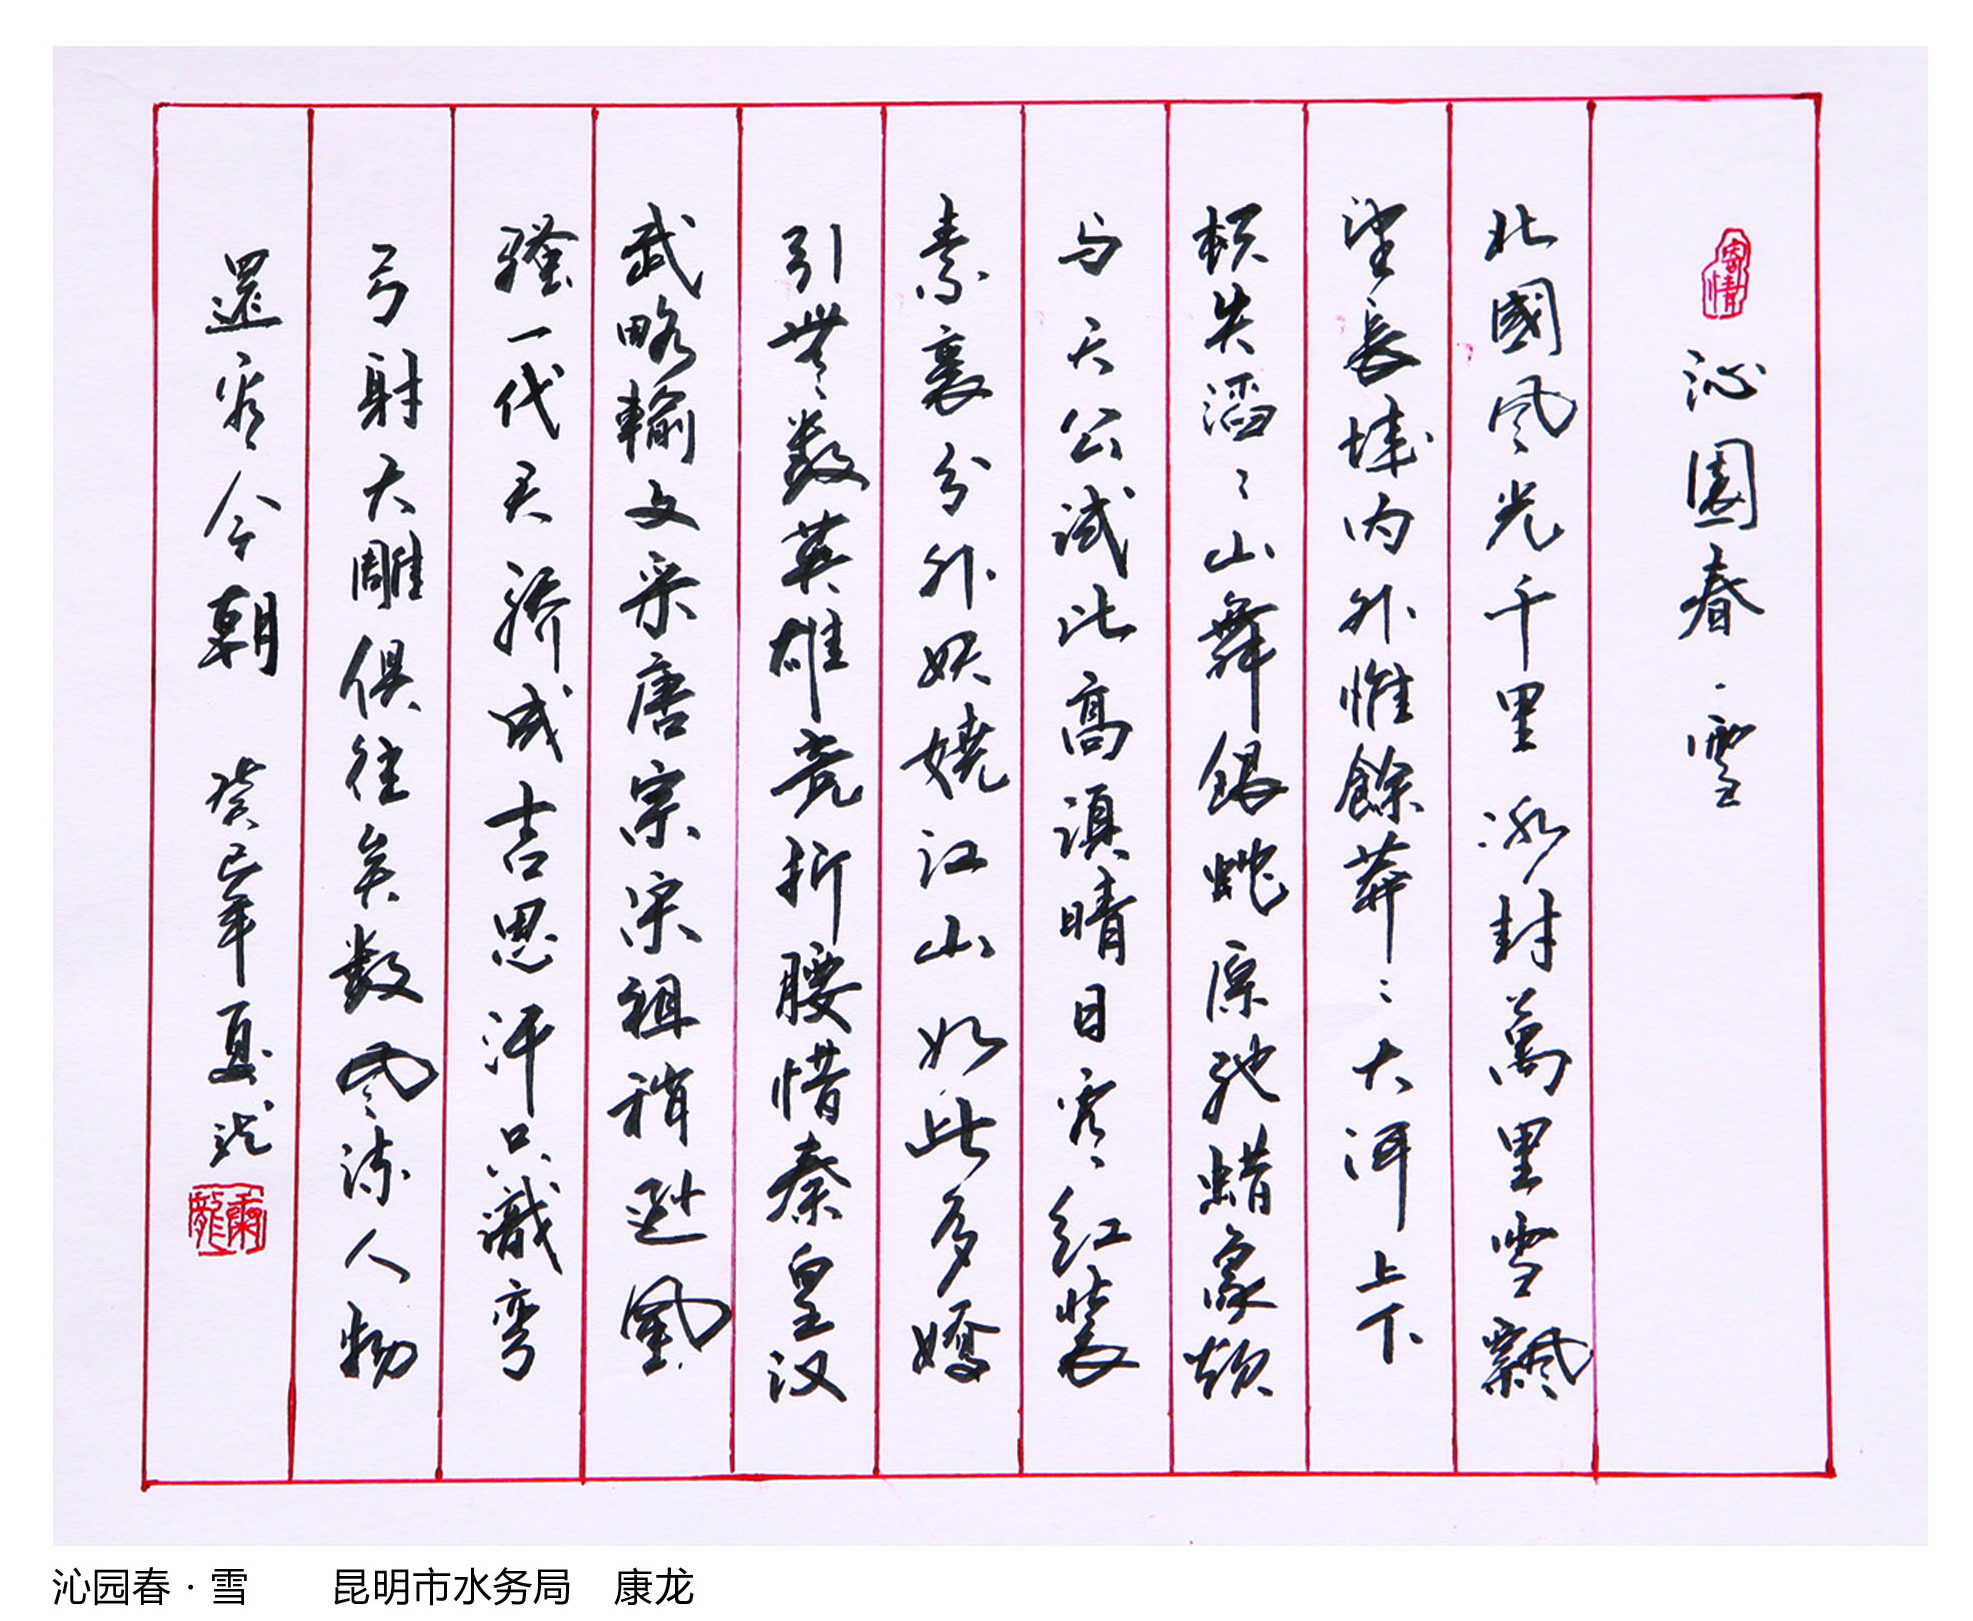 寄情
沁園春·雪
北國风光千里冰封萬里雪飄
望長城内外惟餘莽〻大河上下
頓失滔〻山舞銀蛇原馳蜡象欲
与天公試比高須晴日看红装
素裹分外妖嬈江山如此多嬌
引無数英雄竞折腰惜秦皇汉
武略輸文采唐宗宋祖稍逊風
骚一代天骄成吉思汗只識弯
弓射大雕俱往矣数风流人物
還看今朝 癸巳年夏龙
康龍
沁园春·雪 昆明市水务局 康龙